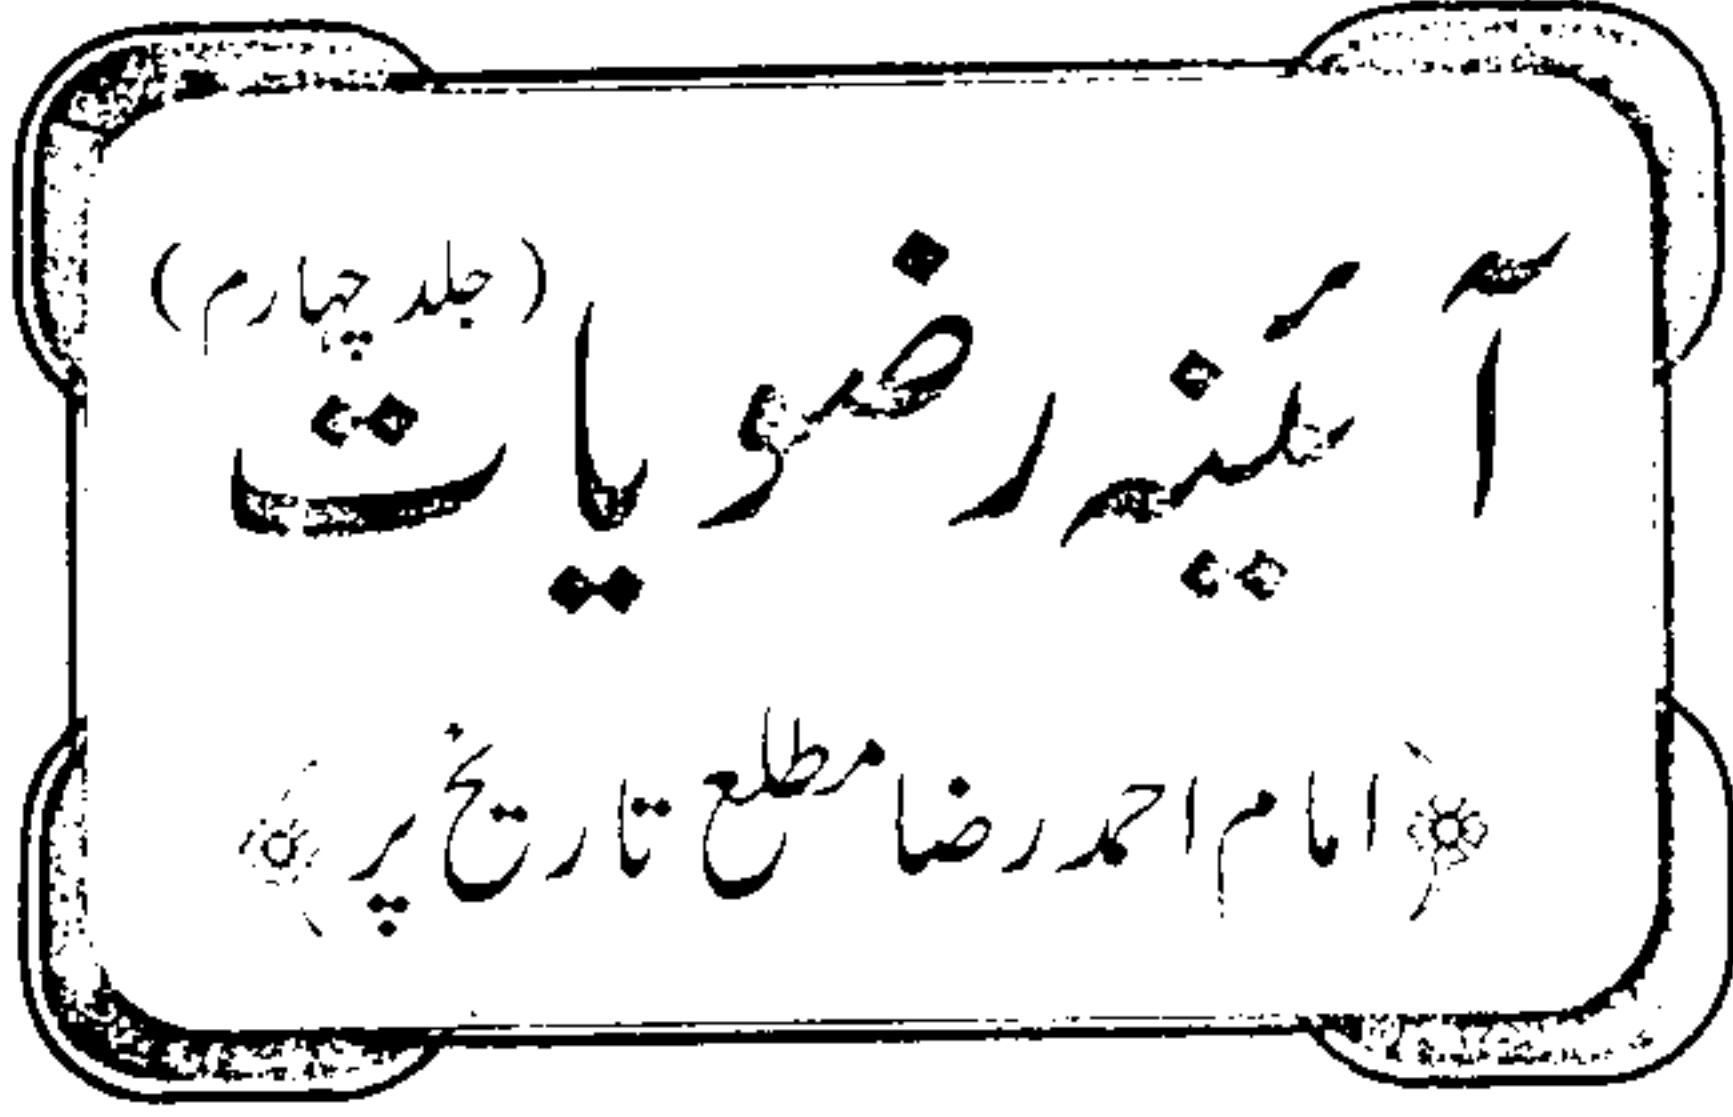 آئینہ رضویات (جلد چہارم)
امام احمد رضا مطلع تاریخ پر